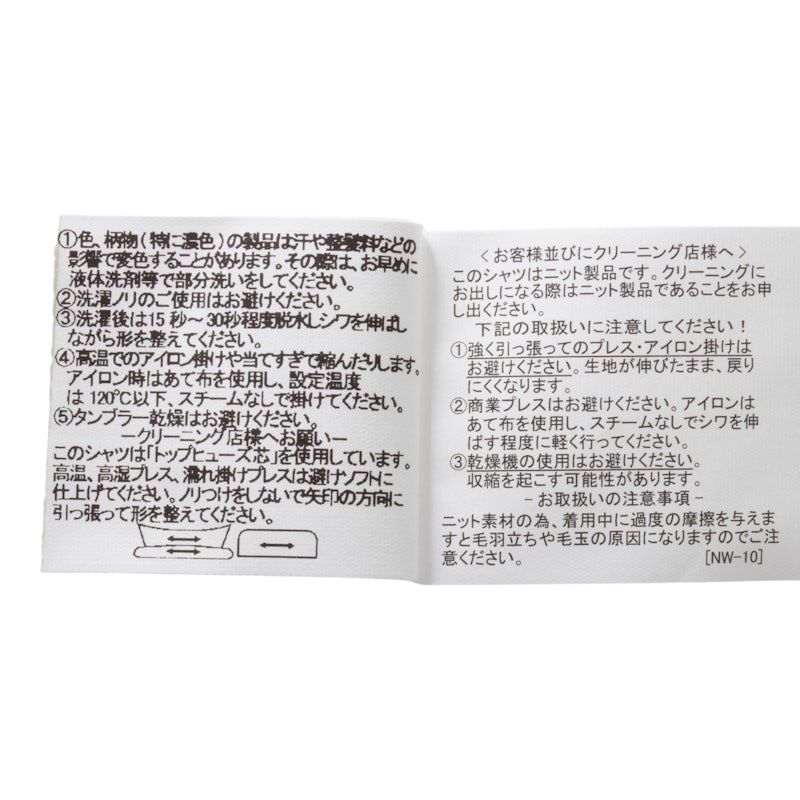 ①色、柄物(特に濃色)の製品は汗や整髪料などの
影響で変色することがあります。その際は、お早めに
液体洗剤等で部分洗いをしてください。
②洗濯ノリのご使用はお避けください。
③洗濯後は15秒～30秒程度脱水しシワを伸ばし
ながら形を整えてください。
④高温でのアイロン掛けや当てすぎで縮んだりします。
アイロン時はあて布を使用し、設定温度
は120℃以下、スチームなしで掛けてください。
⑤タンブラー乾燥はお避けください。
―クリーニング店様へお願い―
このシャツは「トップヒューズ芯」を使用しています。
高温、高湿プレス、濡れ掛けプレスは避けソフトに
仕上げてください。ノリつけをしないで矢印の方向に
引っ張って形を整えてください。
＜お客様並びにクリーニング店様へ＞
このシャツはニット製品です。クリーニングに
お出しになる際はニット製品であることをお申
し出ください。
下記の取扱いに注意してください！
①強く引っ張ってのプレス・アイロン掛けは
お避けください。生地が伸びたまま、戻り
にくくなります。
②商業プレスはお避けください。アイロンは
あて布を使用し、スチームなしでシワを伸
ばす程度に軽く行ってください。
③乾燥機の使用はお避けください。
収縮を起こす可能性があります。
－お取扱いの注意事項－
ニット素材の為、着用中に過度の摩擦を与えま
すと毛羽立ちや毛玉の原因になりますのでご注
意ください。 [NW-10]